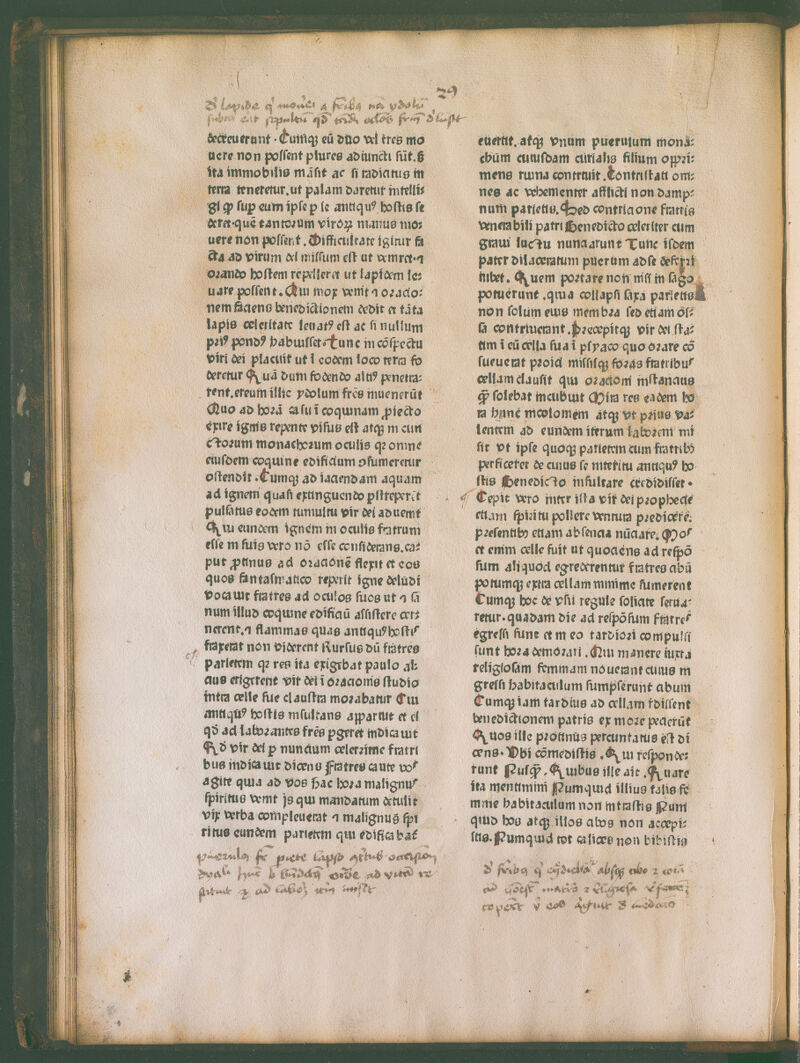 29
decreuerunt . Cumq; eū duo vel tres mo
uere non possent plures adiuncti sūt. s
ita immobilis māsit ac si radicitus in
terra teneretur. ut palam daretur intelli⸗
gi ꝙ suꝑ eum ipse ꝑ se antiquꝰ hostis se
deret. quē tantorum viroꝝ manus mo⸗
uere non possent . Difficultate igitur fa
cta ad virum dei missum est ut veniret . ⁊
orando hostem repelleret ut lapidem le⸗
uare possent . Qui mox venit ⁊ oracio⸗
nem faciens benedictionem dedit et tāta
lapis celeritate leuatꝰ est ac si nullum
priꝰ pondꝰ habuisset . Tunc in cōspectu
viri dei placuit ut ī eodem loco terra fo
deretur Quā dum fodendo altiꝰ penetra⸗
rent. ereum illic ydolum frēs inuenerūt
Quo ad horā casu ī coquinam ꝓiecto
exire ignis repente visus est atq; in cun
ctorum monachorum oculis qꝛ omne
eiusdem coquine edificium ꝯsumeretur
ostendit . Cumq; ad iaciendam aquam
ad ignem quasi extinguendo ꝑstreperēt
pulsatus eodem tumultu vir dei aduenit
Qui eundem ignem in oculis fratrum
esse in suis vero nō esse considerans. ca⸗
put ꝓtinus ad oracionē flexit et eos
quos fantasmatico reperit igne deludi
vocauit fratres ad oculos suos ut ⁊ sa
num illud coquine edificiū assistere cer⸗
nerent. ⁊ flammas quas antiquꝰ hostis
fraxerat non viderent Rursus dū fratres
parietem qꝛ res ita exigebat paulo al⸗
cius erigerent vir dei ī oracionis studio
intra celle sue claustra morabatur Cui
antiquꝰ hostis insultans apparuit et ei
qd ad laborantes frēs ꝑgeret indicauit
Qd vir dei ꝑ nuncium celerrime fratri
bus indicauit dicens Fratres caute vos
agite quia ad vos hac hora malignus
spiritus venit js qui mandatum detulit
vix verba compleuerat ⁊ malignus spi
ritus eundem parietem qui edificabat
euertit. atq; vnum puerulum mona⸗
chum cuiusdam curialis filium oppri⸗
mens ruina contriuit . Contristati om⸗
nes ac vehementer afflicti non damp⸗
num parietis. Sed contricione fratris
venerabili patri Benedicto celeriter cum
graui luctu nunciarunt Tunc isdem
pater dilaceratum puerum ad se deferri
iubet . Quem portare non nisi in sago
potuerunt . quia collapsi saxa parietis
non solum eius membra sed etiam os⸗
sa contriuerant. Precepitq; vir dei sta⸗
tim ī eū cella sua ī psyaco quo orare cō
sueuerat proici missisq; foras fratribus
cellam clausit qui oracioni instancius
ꝙ̄ solebat incubuit Mira res eadem ho
ra hunc incolomem atq; vt prius va⸗
lentem ad eundem iterum laborem mi
sit vt ipse quoq; parietem cum fratribꝰ
perficeret de cuius se interitu antiquꝰ ho
stis Benedicto insultare credidisset .
Cepit vero inter ista vir dei prophecie
etiam spiritu pollere ventura predicere.
presentibꝰ etiam absencia nūciare. Mos
et enim celle fuit ut quociens ad respō
sum aliquod egrederentur fratres cibū
potumq; extra cellam minime sumerent
Cumq; hoc de vsu regule solicite serua⸗
retur. quadam die ad respōsum fratres
egressi sunt et in eo tardiori compulsi
sunt hora demorari . Qui manere iuxta
religiosam feminam nouerant cuius in
gressi habitaculum sumpserunt cibum
Cumq; iam tardius ad cellam rdissent
benedictionem patris ex more pecierūt
Quos ille protinus percunctatus est di
cens . Vbi cōmedistis . Qui responde⸗
runt Nusꝙ̄ . Quibus ille ait . Quare
ita mentimini Nunquid illius talis fe
mine habitaculum non intrastis Nun
quid hos atq; illos cibos non accepi⸗
stis. Nunquid tot calices non bibistis